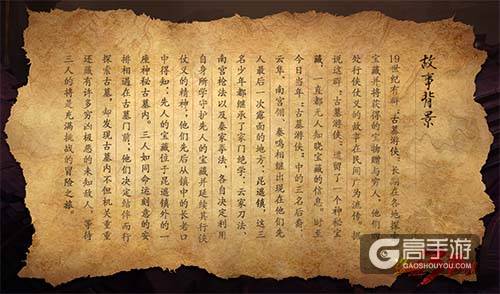 故事背景
19世纪有群“古墓游侠”，长期在各地探
宝藏并将获得的宝物赠与穷人，他们
处行侠仗义的故事在民间广为流传，据
说这群“古墓游侠”遗留了一个神秘宝
藏，一直都无人知晓宝藏的信息，时至
今日当年“古墓游侠”中的三名后裔，
云隼、南宫翎、秦鸣相继出现在他们先
人最后一次露面的地方：昆遁镇，这三
名少年都继承了家门绝学：云家刀法、
南宫枪法以及秦家拳法，各自决定利用
自身所学守护先人的宝藏并延续其行侠
仗义的精神，他们先后从镇中的长老口
中得知，先人的宝藏位于昆遁镇外的一
座神秘古墓内，三人如同命运刻意的安
排相遇在古墓门前，他们决定结伴而行
探索古墓，却发现古墓内不但机关重重
还藏有许多穷凶极恶的未知敌人，等待
三人的将是充满挑战的冒险之旅。
高手游
GAOSHOUYOU.COM